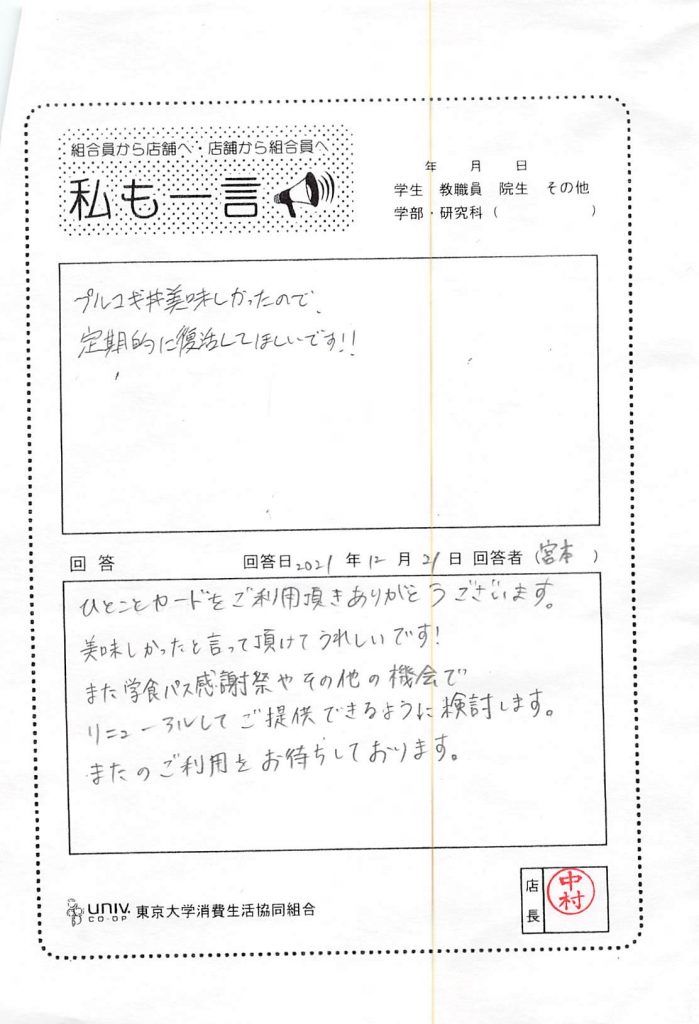 組合員から店舗へ・店舗から組合員へ
私も一言
年 月 日
学生 教職員 院生 その他
学部・研究科（ ）
プルコギ丼美味しかったので、
定期的に復活してほしいです!!
回答 回答日2021年12月21日 回答者（宮本）
ひとことカードをご利用頂きありがとうございます。
美味しかったと言って頂けてうれしいです!
また学食パス感謝祭やその他の機会で
リニューアルしてご提供できるように検討します。
またのご利用をお待ちしております。
UNIV. CO-OP 東京大学消費生活協同組合
店長
中村